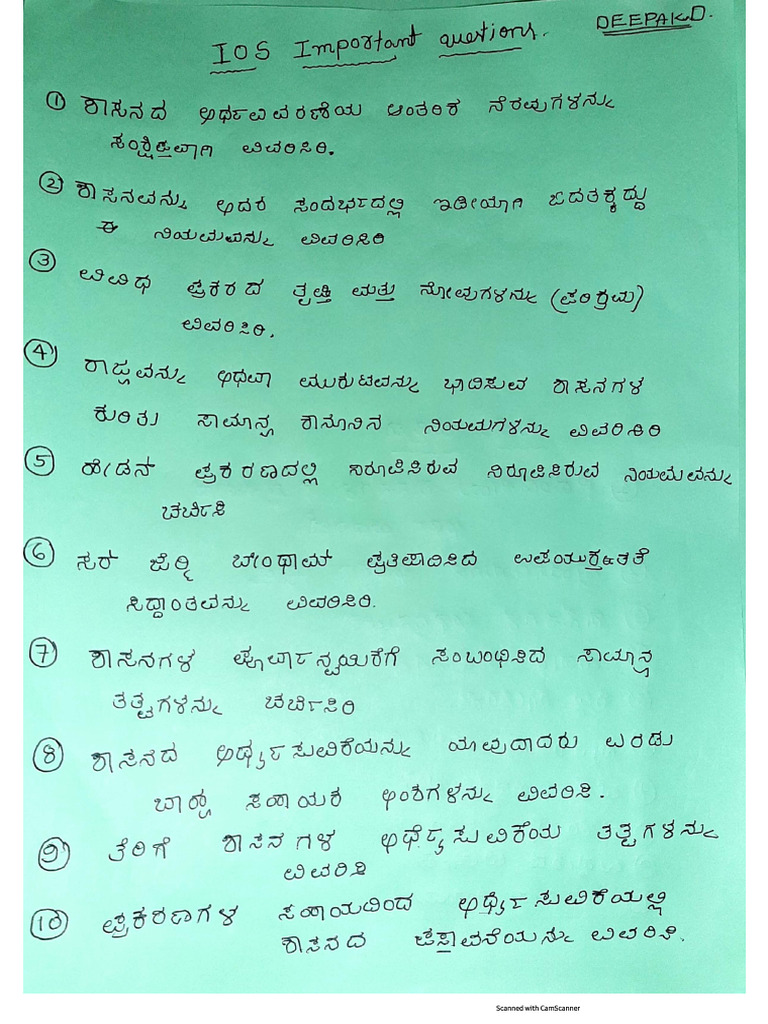 IOS Important questions. DEEPAK.D.
① ಶಾಸನದ ಅರ್ಥವಿವರಣೆಯ ಆಂತರಿಕ ನೆರವುಗಳನ್ನು
ಸಂಕ್ಷಿಪ್ತವಾಗಿ ವಿವರಿಸಿರಿ.
② ಶಾಸನವನ್ನು ಅದರ ಸಂದರ್ಭದಲ್ಲಿ ಇಡೀಯಾಗಿ ಓದತಕ್ಕದ್ದು
ಈ ನಿಯಮವನ್ನು ವಿವರಿಸಿರಿ
③ ವಿವಿಧ ಪ್ರಕರದ ತೃಪ್ತಿ ಮತ್ತು ನೋವುಗಳನ್ನು (ಪರಿಶ್ರಮ)
ವಿವರಿಸಿರಿ.
④ ರಾಜ್ಯವನ್ನು ಅಥವಾ ಮುಕುಟವನ್ನು ಭಾದಿಸುವ ಶಾಸನಗಳ
ಕುರಿತು ಸಾಮಾನ್ಯ ಕಾನೂನಿನ ನಿಯಮಗಳನ್ನು ವಿವರಿಸಿರಿ
⑤ ಹೇಡನ್ ಪ್ರಕರಣದಲ್ಲಿ ನಿರೂಪಿಸಿರುವ ನಿರೂಪಿಸಿರುವ ನಿಯಮವನ್ನು
ಚರ್ಚಿಸಿ
⑥ ಸರ್ ಜೆರ್ಮಿ ಬೇಂಥಾಮ್ ಪ್ರತಿಪಾದಿಸಿದ
ಸಿದ್ದಾಂತವನ್ನು ವಿವರಿಸಿರಿ.
⑦ ಶಾಸನಗಳ ಪೂರ್ವಾನ್ವಯಿಕೆಗೆ ಸಂಬಂಧಿಸಿದ ಸಾಮಾನ್ಯ
ತತ್ವಗಳನ್ನು ಚರ್ಚಿಸಿರಿ
⑧ ಶಾಸನದ ಅರ್ಥೈಸುವಿಕೆಯನ್ನು ಯಾವುದಾದರು ಎರಡು
ಬಾಹ್ಯ ಸಹಾಯಕ ಅಂಶಗಳನ್ನು ವಿವರಿಸಿ.
⑨ ತೆರಿಗೆ ಶಾಸನಗಳ ಅರ್ಥೈಸುವಿಕೆಯ ತತ್ವಗಳನ್ನು
ವಿವರಿಸಿ
⑩ ಪ್ರಕರಣಗಳ ಸಹಾಯದಿಂದ ಅರ್ಥೈಸುವಿಕೆಯಲ್ಲಿ
ಶಾಸನದ ಪ್ರಸ್ತಾವನೆಯನ್ನು ವಿವರಿಸಿ.
Scanned with CamScanner